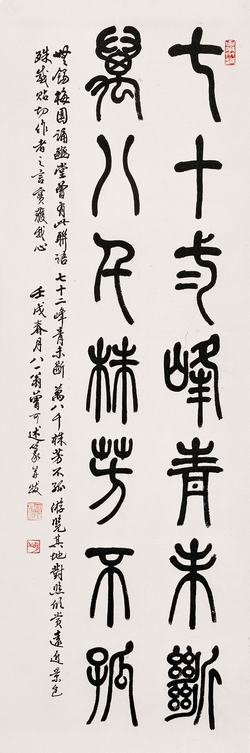 七十二峰青未斷
萬八千株芳不孤
無錫梅園誦豳堂曾有此聯語 七十二峰青未斷 萬八千株芳不孤 游覽其地對照欣賞遠近景色
殊感貼切作者之言實獲我心
壬戌春月八一翁曾可述篆並跋